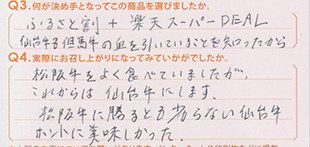 Q3.何が決め手となってこの商品を選びましたか。
ふるさと割 + 楽天スーパーDEAL
仙台牛も但馬牛の血を引いていることを知ったから
Q4.実際にお召し上がりになってみていかがでしたか。
松阪牛をよく食べていましたが、
これからは仙台牛にします。
松阪牛に勝るとも劣らない仙台牛
ホントに美味しかった。